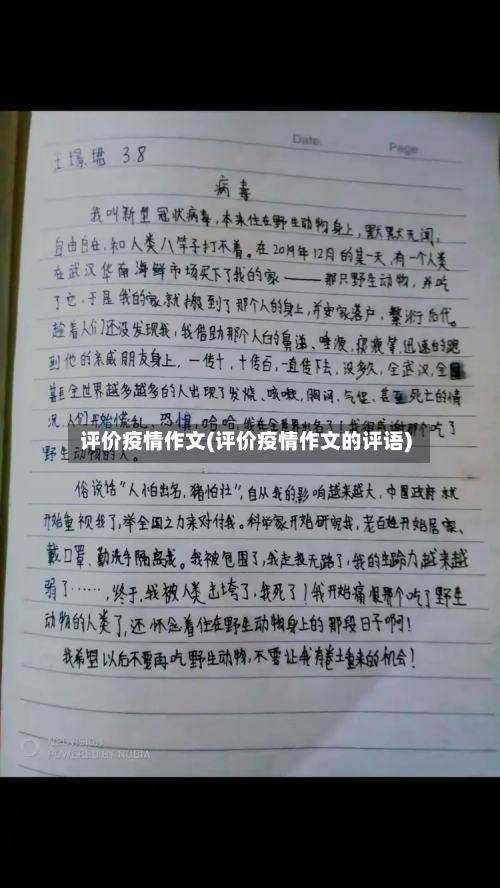 Date
Page
王璟珺 3.8
病毒
我叫新型冠状病毒,本来住在野生动物身上,默默无闻,
自由自在,和人类八竿子打不着。在2019年12月的某一天,有一个人类
在武汉华南海鲜市场买下了我的家——那只野生动物,并吃
了它,于是我的家就搬到了那个人的身上,并安家落户,繁衍后代。
趁着人们还没发现我,我借助那个人的鼻涕、唾液、痰液等,迅速的跑
到他的亲戚朋友身上,一传十,十传百,一直传下去,没多久,全武汉,全国
甚至全世界越多越多的人出现了发烧、咳嗽,胸闷,气促,甚至死亡的情
况,人们开始慌乱、恐惧,哈哈,我在全世界出名了!我很感谢那个吃了
评价疫情作文(评价疫情作文的评语)
野生动物的人。
俗说话“人怕出名,猪怕壮”,自从我的影响越来越大,中国政府就
开始重视我了,举全国之力来对付我。科学家开始研究我,老百姓开始居家、
戴口罩、勤洗手隔离我。我被包围了,我走投无路了,我的生命力越来越
弱了……,终于,我被人类击垮了,我死了!我开始痛恨那个吃了野生
动物的人类了,还怀念着住在野生动物身上的那段日子啊!
我希望以后不要再吃野生动物,不要让我有卷土重来的机会!
POWERED BY NUBIA